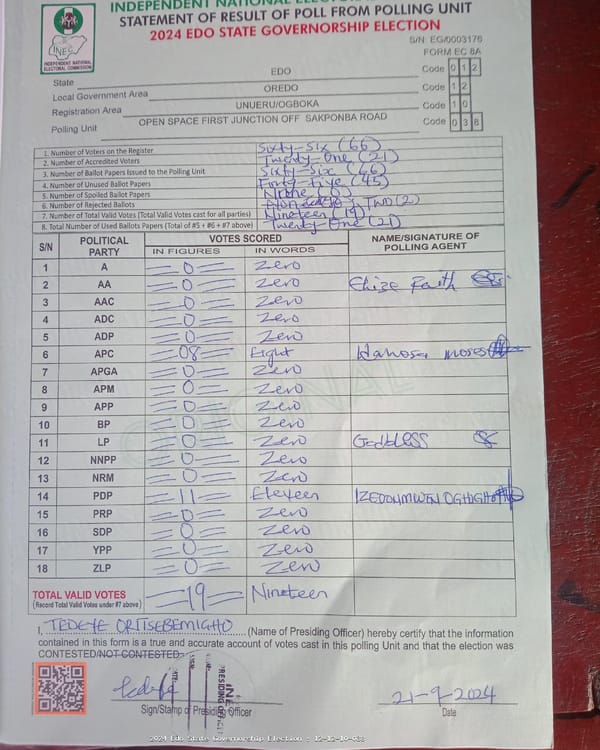 INDEPENDENT NATIONAL
STATEMENT OF RESULT OF POLL FROM POLLING UNIT
2024 EDO STATE GOVERNORSHIP ELECTION
INEC
INDEPENDENT NATIONAL
ELECTORAL COMMISSION
S/N: EG/0003176
FORM EC 8A
State EDO Code 0 1 2
Local Government Area OREDO Code 1 2
Registration Area UNUERU/OGBOKA Code 1 0
Polling Unit OPEN SPACE FIRST JUNCTION OFF SAKPONBA ROAD Code 0 3 8
1. Number of Voters on the Register Sixty-Six (66)
2. Number of Accredited Voters Twenty-One (21)
3. Number of Ballot Papers Issued to the Polling Unit Sixty-Six (66)
4. Number of Unused Ballot Papers Forty-Five (45)
5. Number of Spoiled Ballot Papers (0)
6. Number of Rejected Ballots Two (2)
7. Number of Total Valid Votes (Total Valid Votes cast for all parties) Nineteen (19)
8. Total Number of Used Ballots Papers (Total of #5 + #6 + #7 above) Twenty-One (21)
S/N POLITICAL PARTY VOTES SCORED NAME/SIGNATURE OF POLLING AGENT
IN FIGURES IN WORDS
1 A =0= Zero
2 AA =0= Zero Ehize Faith
3 AAC =0= Zero
4 ADC =0= Zero
5 ADP =0= Zero
6 APC =08= Eight Idahosa moses
7 APGA =0= Zero
8 APM =0= Zero
9 APP =0= Zero
10 BP =0= Zero
11 LP =0= Zero Godbless
12 NNPP =0= Zero
13 NRM =0= Zero
14 PDP =11= Eleven
15 PRP =0= Zero
16 SDP =0= Zero
17 YPP =0= Zero
18 ZLP =0= Zero
TOTAL VALID VOTES =19= Nineteen
(Record Total Valid Votes under #7 above)
I, TEDEYE ORITSEBEMIGHO (Name of Presiding Officer) hereby certify that the information
contained in this form is a true and accurate account of votes cast in this polling Unit and that the election was
CONTESTED/NOT CONTESTED.
INEC
PRESIDING OFFICER
21-9-2024
Sign/Stamp of Presiding Officer Date
2024 Edo State Governorship Election : 12-12-10-038